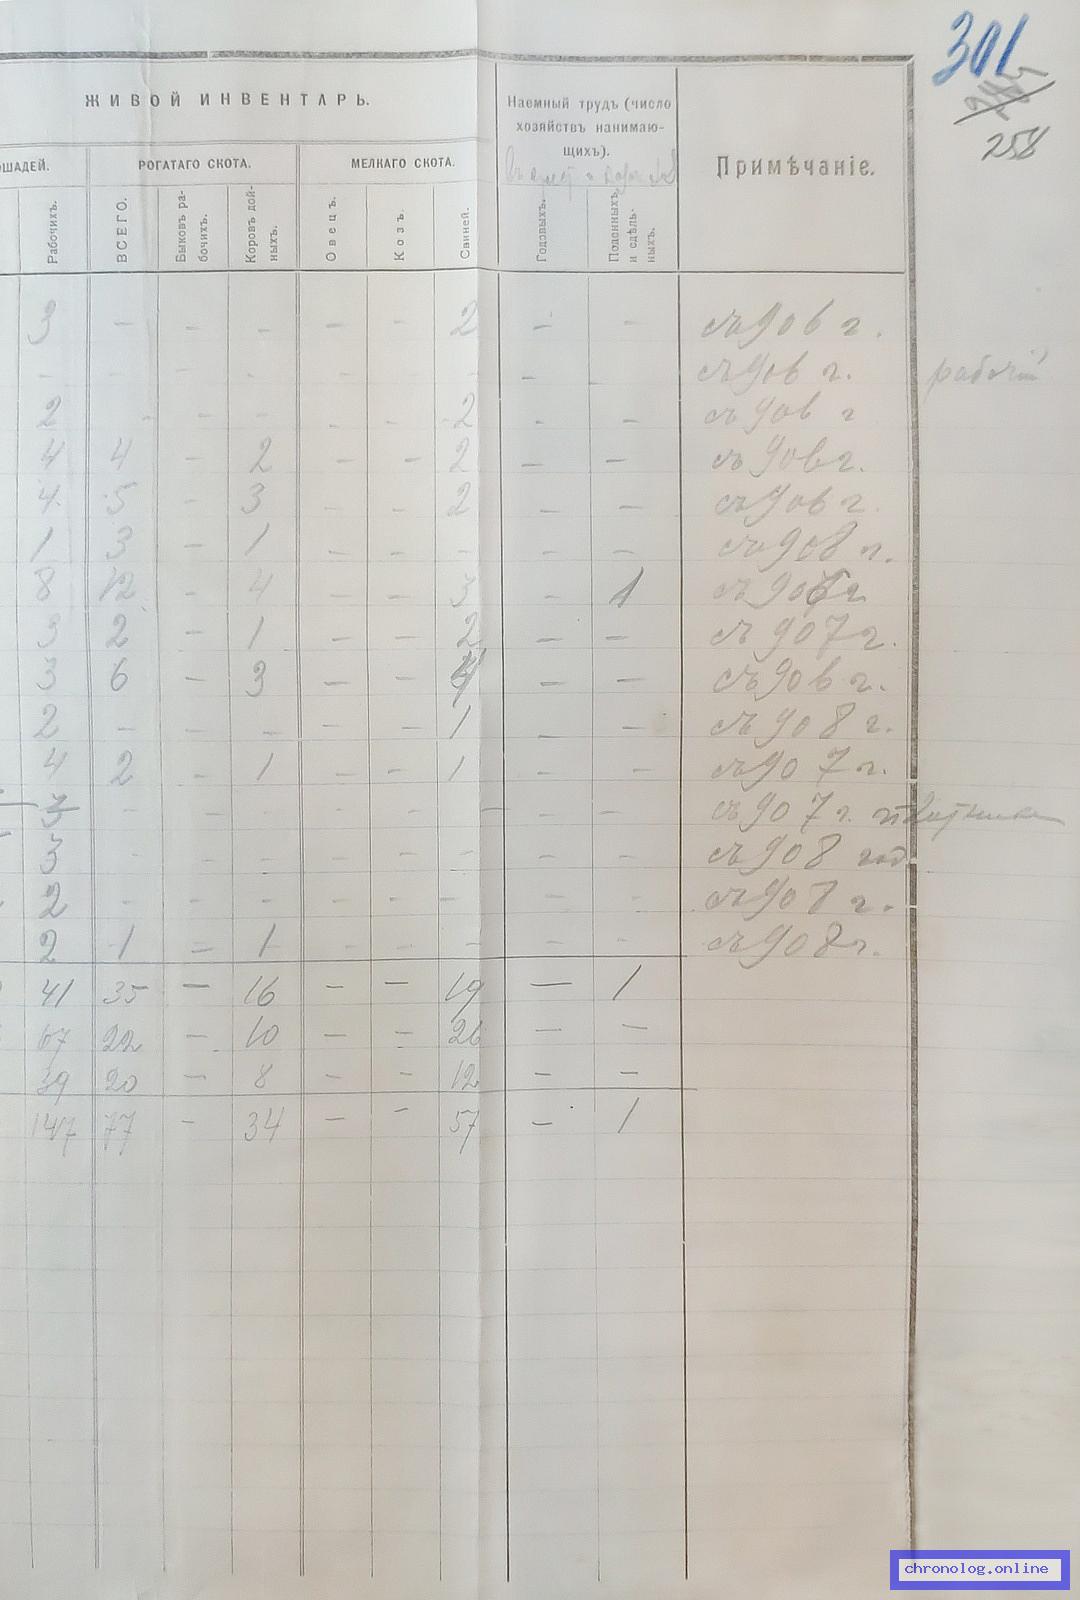 301
258
ЖИВОЙ ИНВЕНТАРЬ.
Наемный трудъ (число хозяйствъ нанимаю-щихъ).
Примѣчаніе.
ОШАДЕЙ. РОГАТАГО СКОТА. МЕЛКАГО СКОТА.
Рабочихъ. ВСЕГО. Быковъ ра-бочихъ. Коровъ дой-ныхъ. Овецъ. Козъ. Свиней. Годовыхъ. Поденныхъ и сдѣль-ныхъ.
3 — — — — — 2 — — съ 906 г.
- - - - - - - — - съ 906 г. рабочій
2 - - - - - 2 - — съ 906 г
4 4 — 2 — — 2 — — съ 906 г.
4 5 - 3 - - 2 — — съ 906 г.
1 3 — 1 — — - — — съ 908 г.
8 12 - 4 — — 3 - 1 съ 906 г
3 2 — 1 — — 2 — — съ 907 г.
3 6 — 3 — — 4 — — съ 906 г.
2 — — - — — 1 — — съ 908 г.
4 2 - 1 — — 1 — — съ 907 г.
3 - - - - - — — — съ 907 г.
3 - - - - - - - - съ 908 год
2 - - - - - — - - съ 908 г.
2 1 — 1 - - - - - съ 908 г.
41 35 — 16 — — 19 — 1
67 22 — 10 — — 26 — —
39 20 — 8 — — 12 — —
147 77 — 34 — — 57 — 1
chronolog.online